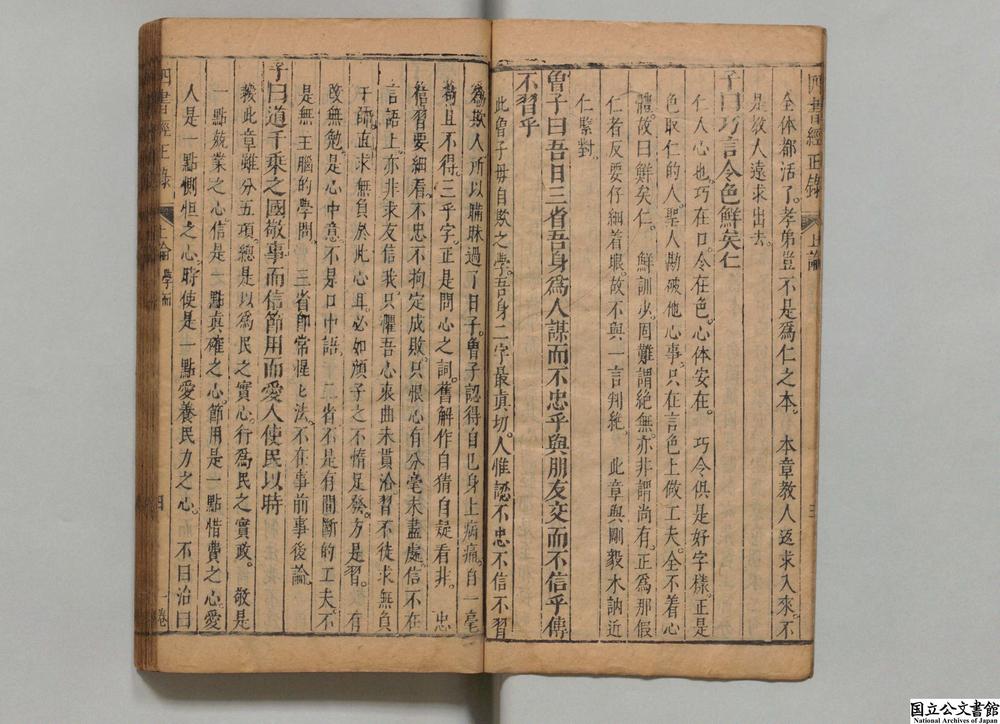 四書經正錄 上論 三
全体都活了。孝弟豈不是爲仁之本。 本章教人返求入來。不
是教人遠求出去。
子曰巧言令色鮮矣仁
仁人心也。巧在口。令在色。心体安在。 巧令俱是好字樣。正是
色取仁的人。聖人勘破他心事。只在言色上做工夫。全不着心
體。故曰鮮矣仁。 鮮訓少。固難謂絶無。亦非謂尚有。正爲那假
仁者反要仔細着眼。故不與一言判絶。 此章與剛毅木訥近
仁緊對。
曾子曰吾日三省吾身爲人謀而不忠乎與朋友交而不信乎傳
不習乎
此曾子毋自欺之學。吾身二字最眞切。人惟認不忠不信不習
爲欺人所以瞞昧過了日子。曾子認得自己身上病痛。自一毫
苟且不得。三乎字正是問心之詞。舊解作自猜自疑看非。 忠
信習要細看。不忠不拘定成敗。只恨心有分毫未盡處。信不在
言語上。亦非求友信我。只懼吾心衷曲未貫洽。習不徒求無負
于師。直求無負於此心耳。必如顏子之不惰足發。方是習。 有
改無勉。是心中意。不是口中語。 三省不是有間斷的工夫。不
是無王腦的學問。 三省卽常惺々法。不在事前事後論。
子曰道千乘之國敬事而信節用而愛人使民以時
義此章雖分五項。總是以爲民之實心。行爲民之實政。 敬是
一點兢業之心。信是一點眞確之心。節用是一點惜費之心。愛
人是一點惻怛之心。時使是一點愛養民力之心。 不曰治曰
四書經正錄 上論 學而 四 一卷
国立公文書館
National Archives of Japan